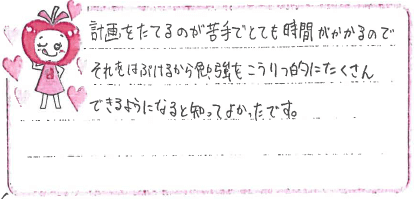 計画をたてるのが苦手でとても時間がかかるので
それをはぶけるから勉強をこうりつ的にたくさん
できるようになると知ってよかったです。